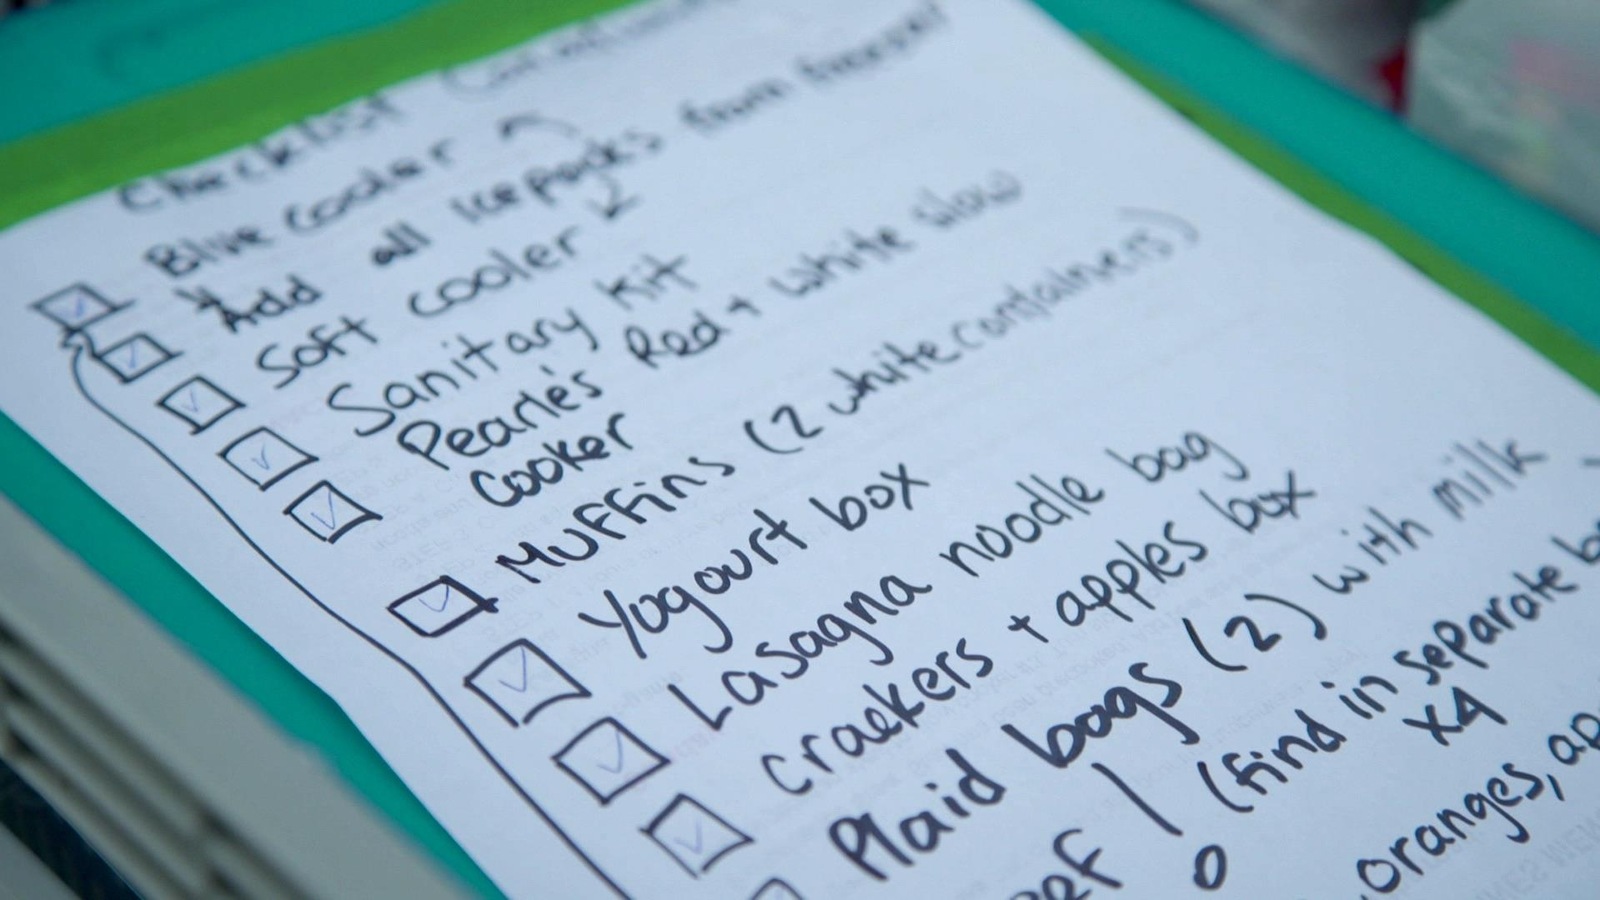 Checklist
Blue cooler
Add all Icepacks from freezer
Soft cooler
Sanitary Kit
Pearle's Red + white slow
Cooker
Muffins (2 white containers)
Yogourt box
Lasagna noodle bag
crackers + apples box
Plaid bags (2) with milk
(find in separate
x4
oranges,